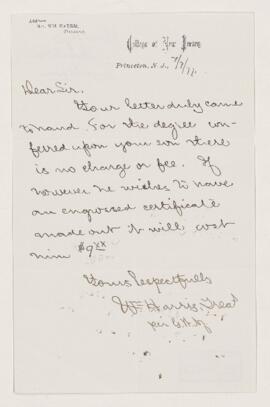 College of New Jersey
Princeton, N. J., 7/7/77
Dear Sir,
Your letter duly came
to hand. For the degree con-
ferred upon your son there
is no charge or fee. If
however he wishes to have
an engrossed certificate
made out it will cost
him $9
Yours respectfully
Wm Harris, Treas
per